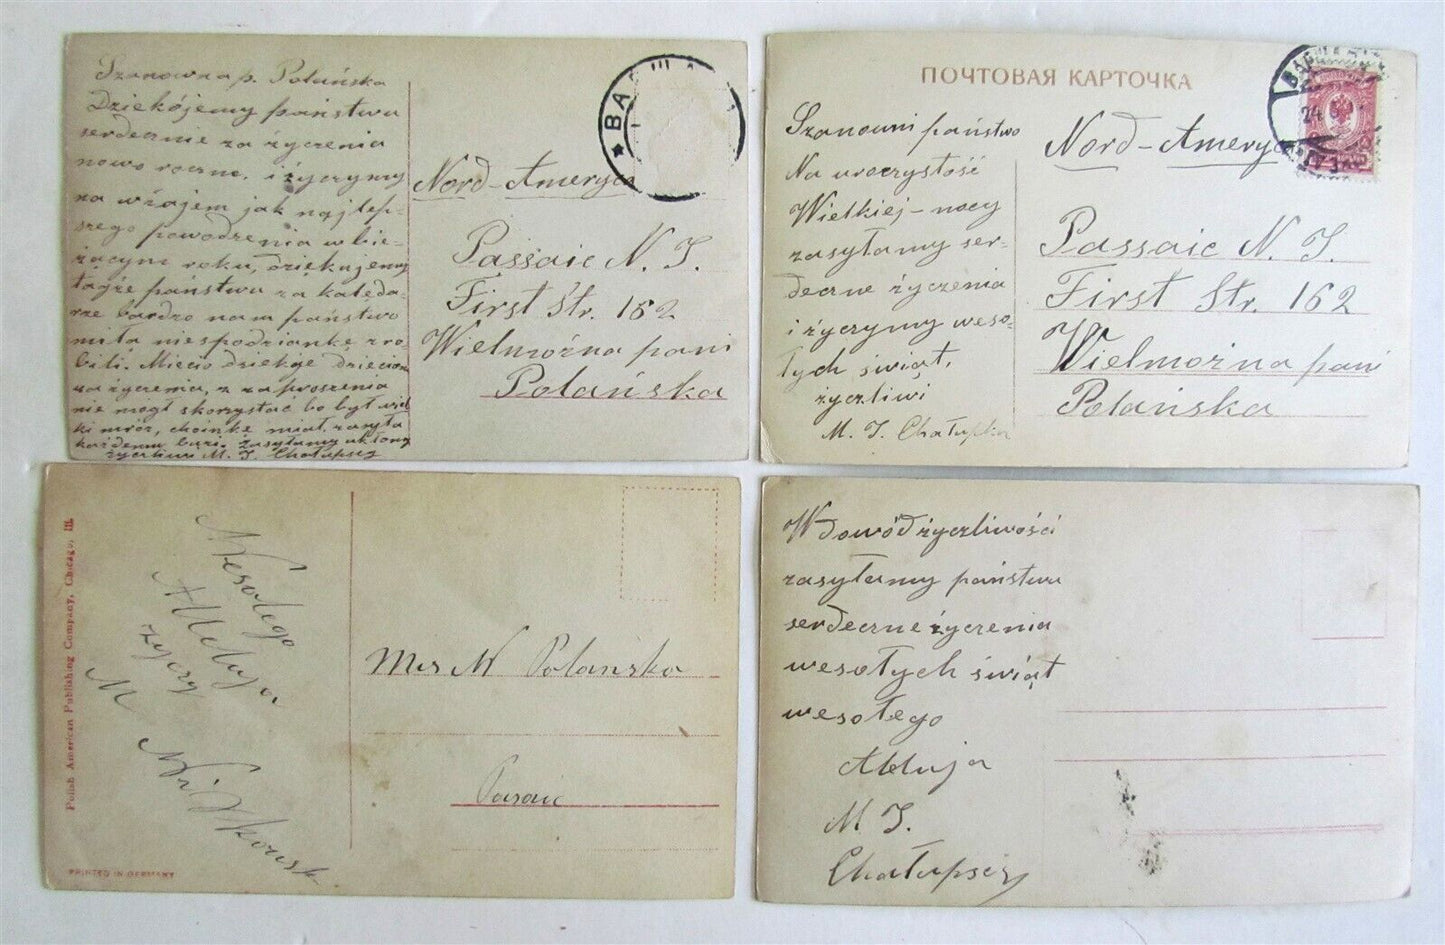 Szanowna p. Polańska
Dziekójemy państwu
serdecznie za życzenia
nowo roczne. i życzymy
na wzajem jak najlep-
szego powodzenia w bie-
żącym roku, dziękujemy
także państwu za kaleda-
rze bardzo nam państwo
miła niespodziankę zro-
bili. Miecio dziękuje
za życzenia, z zaproszenia
nie mógł skorzystać bo był wiel
ki mróz, choinkę miał
zasyłamy ukłony
życzliwi M. J. Chałupscy
ВАРША
Nord-Ameryca
Passaic N. J.
First Str. 162
Wielmożna pani
Polańska
ПОЧТОВАЯ КАРТОЧКА
Szanowni państwo
Na uroczystość
Wielkiej-nocy
zasyłamy ser-
deczne życzenia
i życzymy weso-
łych świąt,
życzliwi
M. J.
ВАРШАВА
24
Nord-Ameryca
Passaic N. J.
First Str. 162
Wielmożna pani
Polańska
Polish American Publishing Company, Chicago, Ill.
PRINTED IN GERMANY
Wesołego
Alleluja
życzy
M
Mrs M Polańska
Pasaic
W dowód życzliwości
zasyłamy państwu
serdeczne życzenia
wesołych świąt
wesołego
Alluja
M J.
Chałupscy